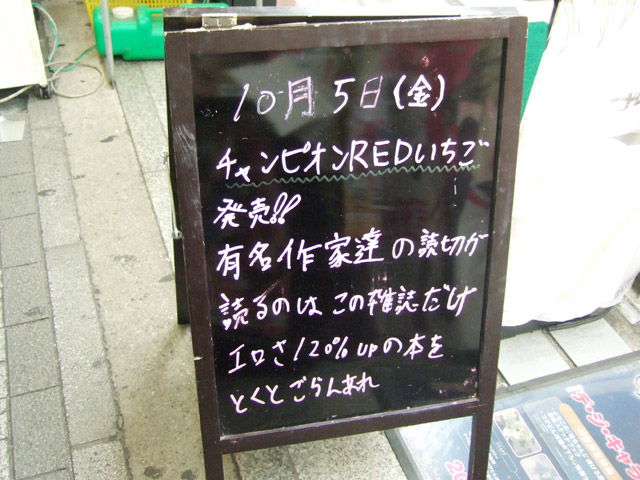 10月5日(金)
チャンピオンREDいちご
発売!!
有名作家達の読切が
読るのはこの雑誌だけ
エロさ120%upの本を
とくとごらんあれ
デ・ジ・キャラ
20